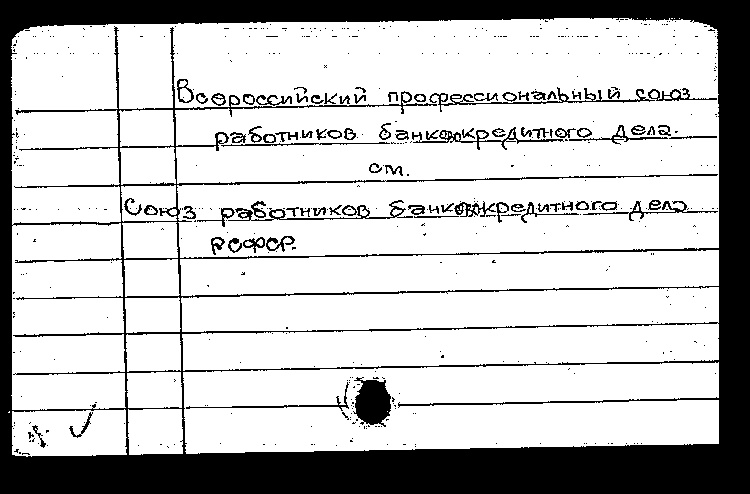 Всероссийский профессиональный союз
работников банкокредитного дела.
см.
Союз работников банкокредитного дела
РСФСР.